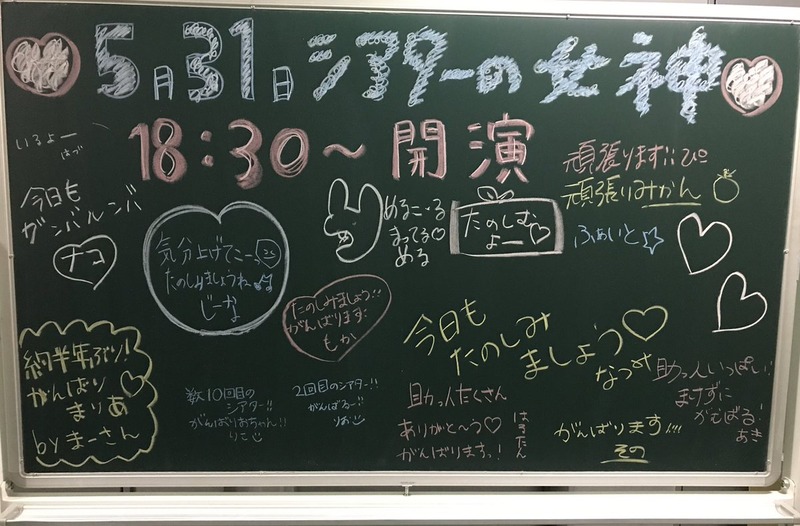 5月31日シアターの女神
18:30～開演
いるよー
はづ
今日も
ガンバルンバ
ナコ
気分上げてこー
たのしみましょうね
じーな
めるこーる
まってる♡
める
たのしむ
よー♡
頑張ります!!ぴ
頑張りみかん
ふぁいと☆
たのしみましょう!!
がんばります
もか
今日も
たのしみ
ましょう♡
なつみ
約半年ぶり!
がんばり♡
まりあ
byまーさん
数10回目の
シアター!!
がんばりおちゃん!!
りこ
2回目のシアター!!
がんばるー!!
りお
助っ人たくさん
ありがと～う♡
がんばりますっ!
はすたん
がんばります!!!
その
助っ人いっぱい!
まけずに
がむばる!
あき